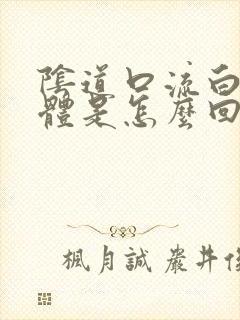 陰道口流白
體是怎麼回
楓月誠嚴井俊